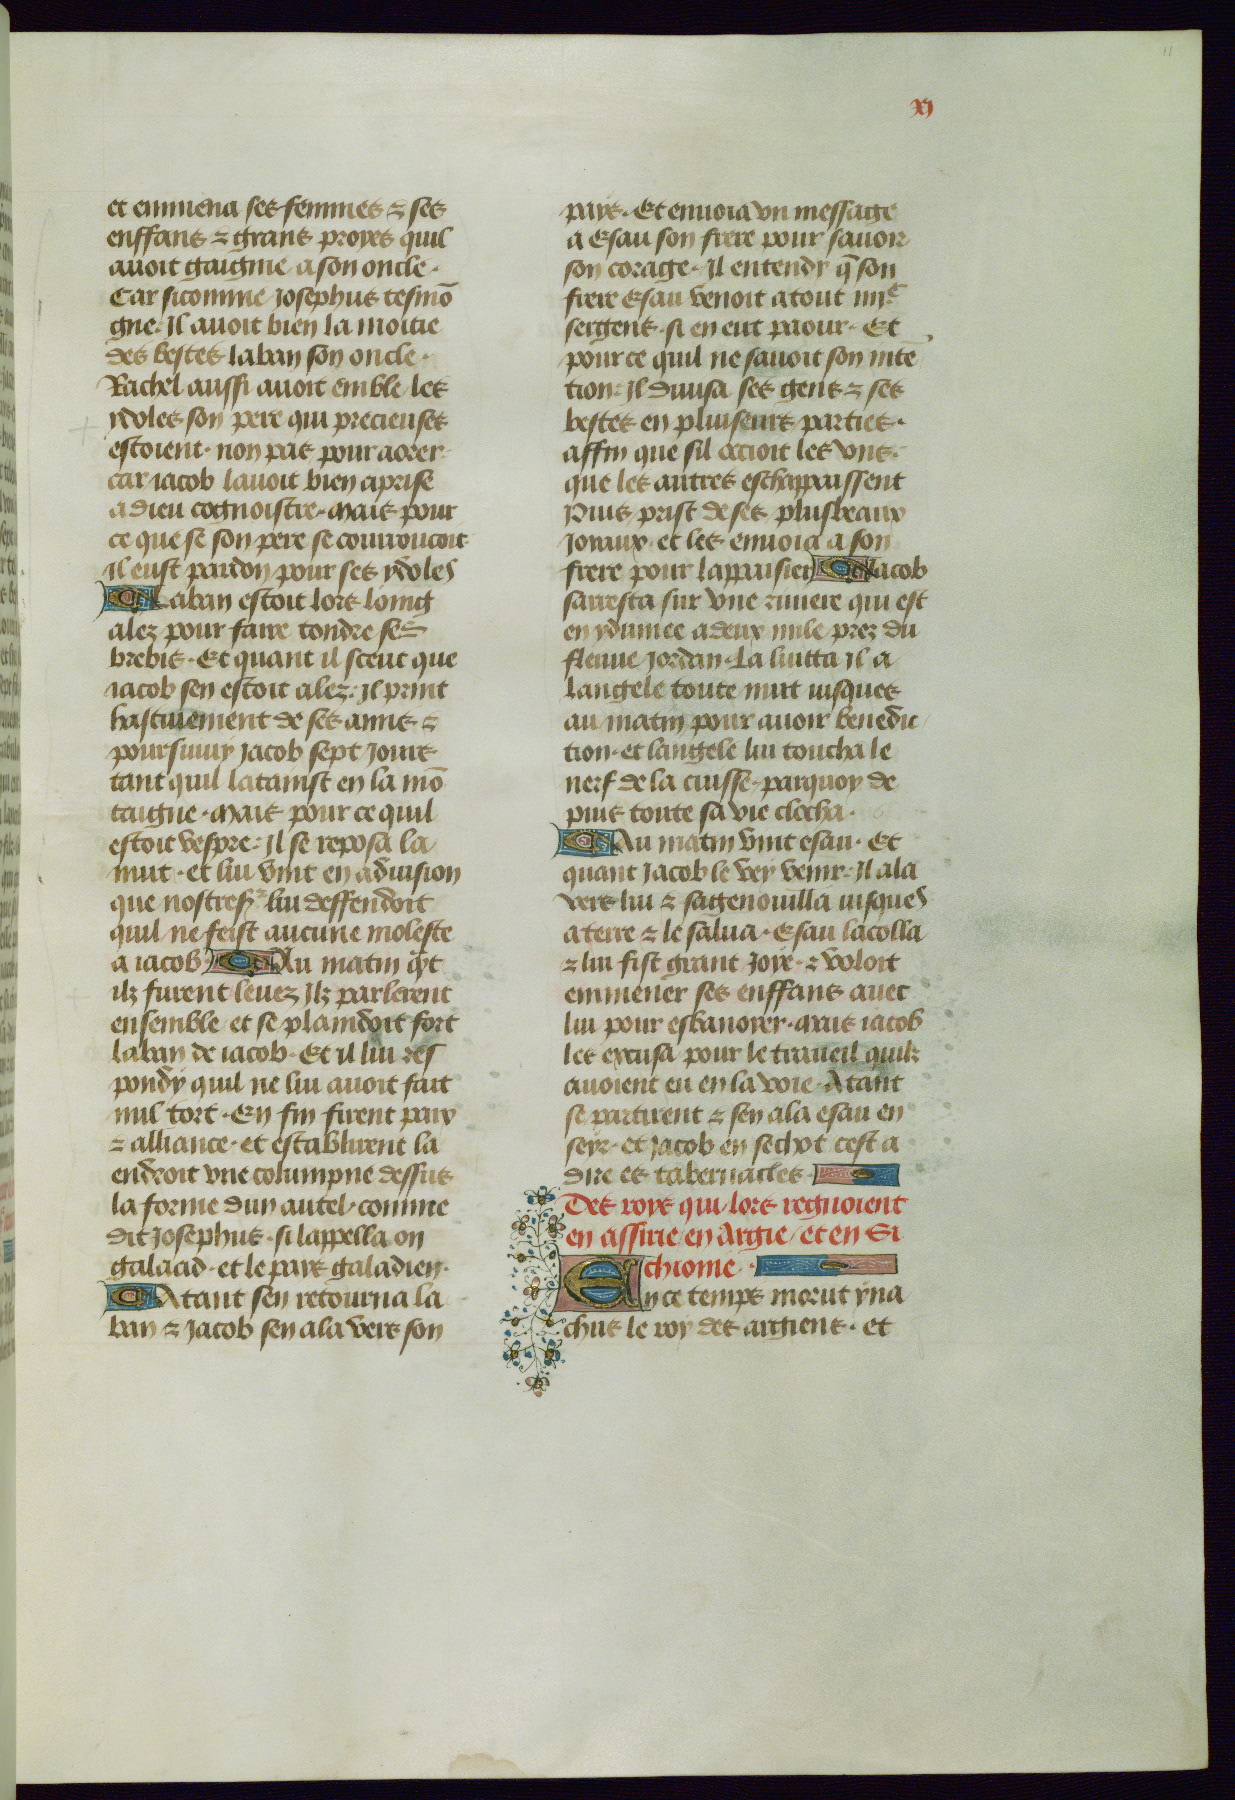 11
xj
et emmena ses femmes ⁊ ses
enffans ⁊ grans proyes quil
auoit gaignie a son oncle·
Car sicomme iosephus tesmō
gne· Il auoit bien la moitie
des bestes laban son oncle·
Rachel aussi auoit emble les
ydoles son pere qui precieuses
estoient· non pas pour aorer
car iacob lauoit bien aprise
a dieu cognoistre· Mais pour
ce que se son pere se courroucoit
il eust pardon pour ses ydoles
Laban estoit lors loing
alez pour faire tondre ses
brebis· Et quant il sceut que
iacob sen estoit alez· Il print
hastiuement de ses amis ⁊
poursuiuy Jacob sept Jours
tant quil latainst en la mō
taigne· Mais pour ce quil
estoit vespre· Il se reposa la
nuit· et lui vint en aduision
que nostresr lui deffendoit
quil ne feist aucune moleste
a iacob· Au matin qñt
ilz furent leuez Ilz parlerent
ensemble et se plaindoit fort
laban de iacob· Et il lui res
pondy quil ne lui auoit fait
nul tort· En fin firent paix
⁊ alliance· et establirent la
endroit vne columpne dessus
la forme dun autel· comme
dit Josephus· si lappella on
galaad· et le pays galadien·
Atant sen retourna la
ban ⁊ Jacob sen ala vers son
pays· Et enuoia vn message
a Esau son frere pour sauoir
son corage· Il entendy q̄ son
frere Esau venoit atout iiiic
sergens· si en eut paour· Et
pour ce quil ne sauoit son intē
tion· Il diuisa ses gens ⁊ ses
bestes en pluiseurs parties·
affin que sil occioit les vns·
que les autres eschappaissent
Puis prist de ses plus beaux
Joyaux· et les enuoia a son
frere pour lappaisier Iacob
sarresta sur vne riuiere qui est
en ydumee a deux mile prez du
fleuue Jordan· La luitta Il a
langele toute nuit iusques
au matin pour auoir benedic
tion· et langele lui toucha le
nerf de la cuisse· parquoy de
puis toute sa vie clocha·
Au matin vint esau· Et
quant Jacob le vey venir· Il ala
vers lui ⁊ sagenouilla iusques
a terre ⁊ le salua· Esau lacolla
⁊ lui fist grant Joye· ⁊ voloit
emmener ses enffans auec
lui pour esbanoyer· Mais iacob
les excusa pour le traueil quilz
auoient eu en la voie· Atant
se partirent ⁊ sen ala esau en
seyr· et Jacob en sechot cest a
dire es tabernacles·
Des roys qui lors regnoient
en assirie/ en Argie/ et en Si
chiome·
En ce temps morut yna
chus le roy des argiens· et